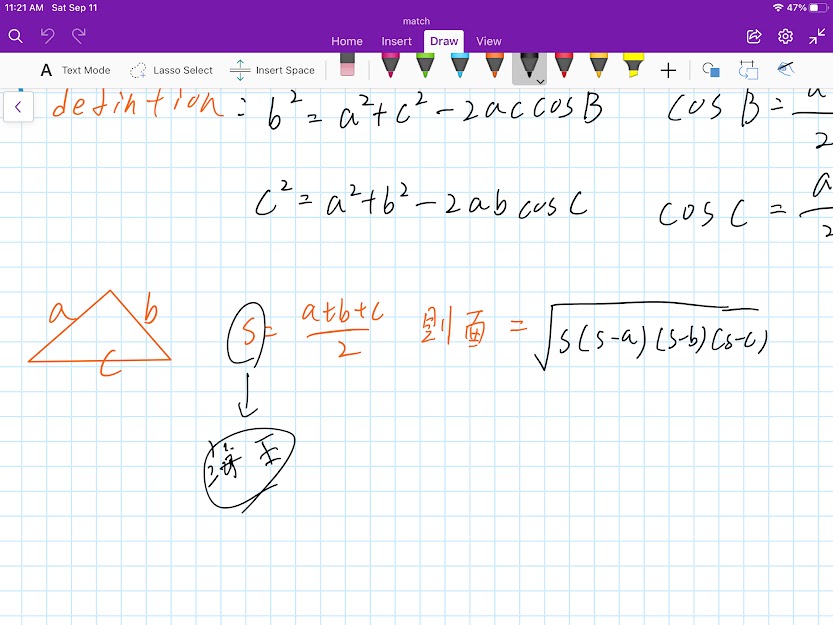 11:21 AM Sat Sep 11 47%
match
Home Insert Draw View
A Text Mode Lasso Select Insert Space
defintion : b² = a²+c² - 2accosB cos B =
c² = a²+b² - 2abcosC cos C =
a b c
s = a+b+c/2 則面 = √s(s-a)(s-b)(s-c)